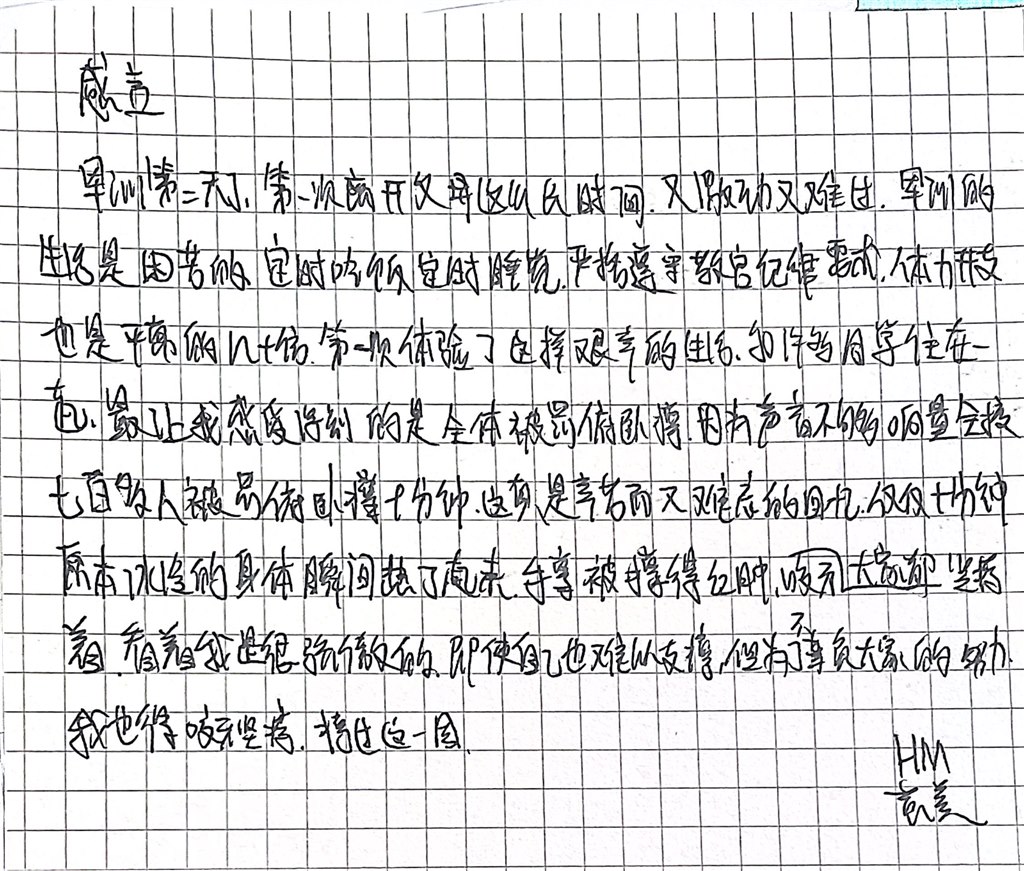 感言
军训第二天了,第一次离开父母这么长时间.又激动又难过.军训的
生活是困苦的,定时吃饭定时睡觉.严格遵守教官纪律要求.体力开支
也是平常的几十倍.第一次体验了这样艰辛的生活.和许多同学住在一
起.最让我感受深刻的是全体被罚俯卧撑.因为声音不够响量全校
七百多人被罚俯卧撑十分钟.这真是辛苦而又难忘的回忆.仅仅十分钟
原本冰冷的身体瞬间热了起来.手掌被撑得红肿,咬牙大家都坚持
着.看着我是很骄傲的.即使自己也难以支撑,但为了不辜负大家的努力.
我也得咬牙坚持.撑过这一国.
HM